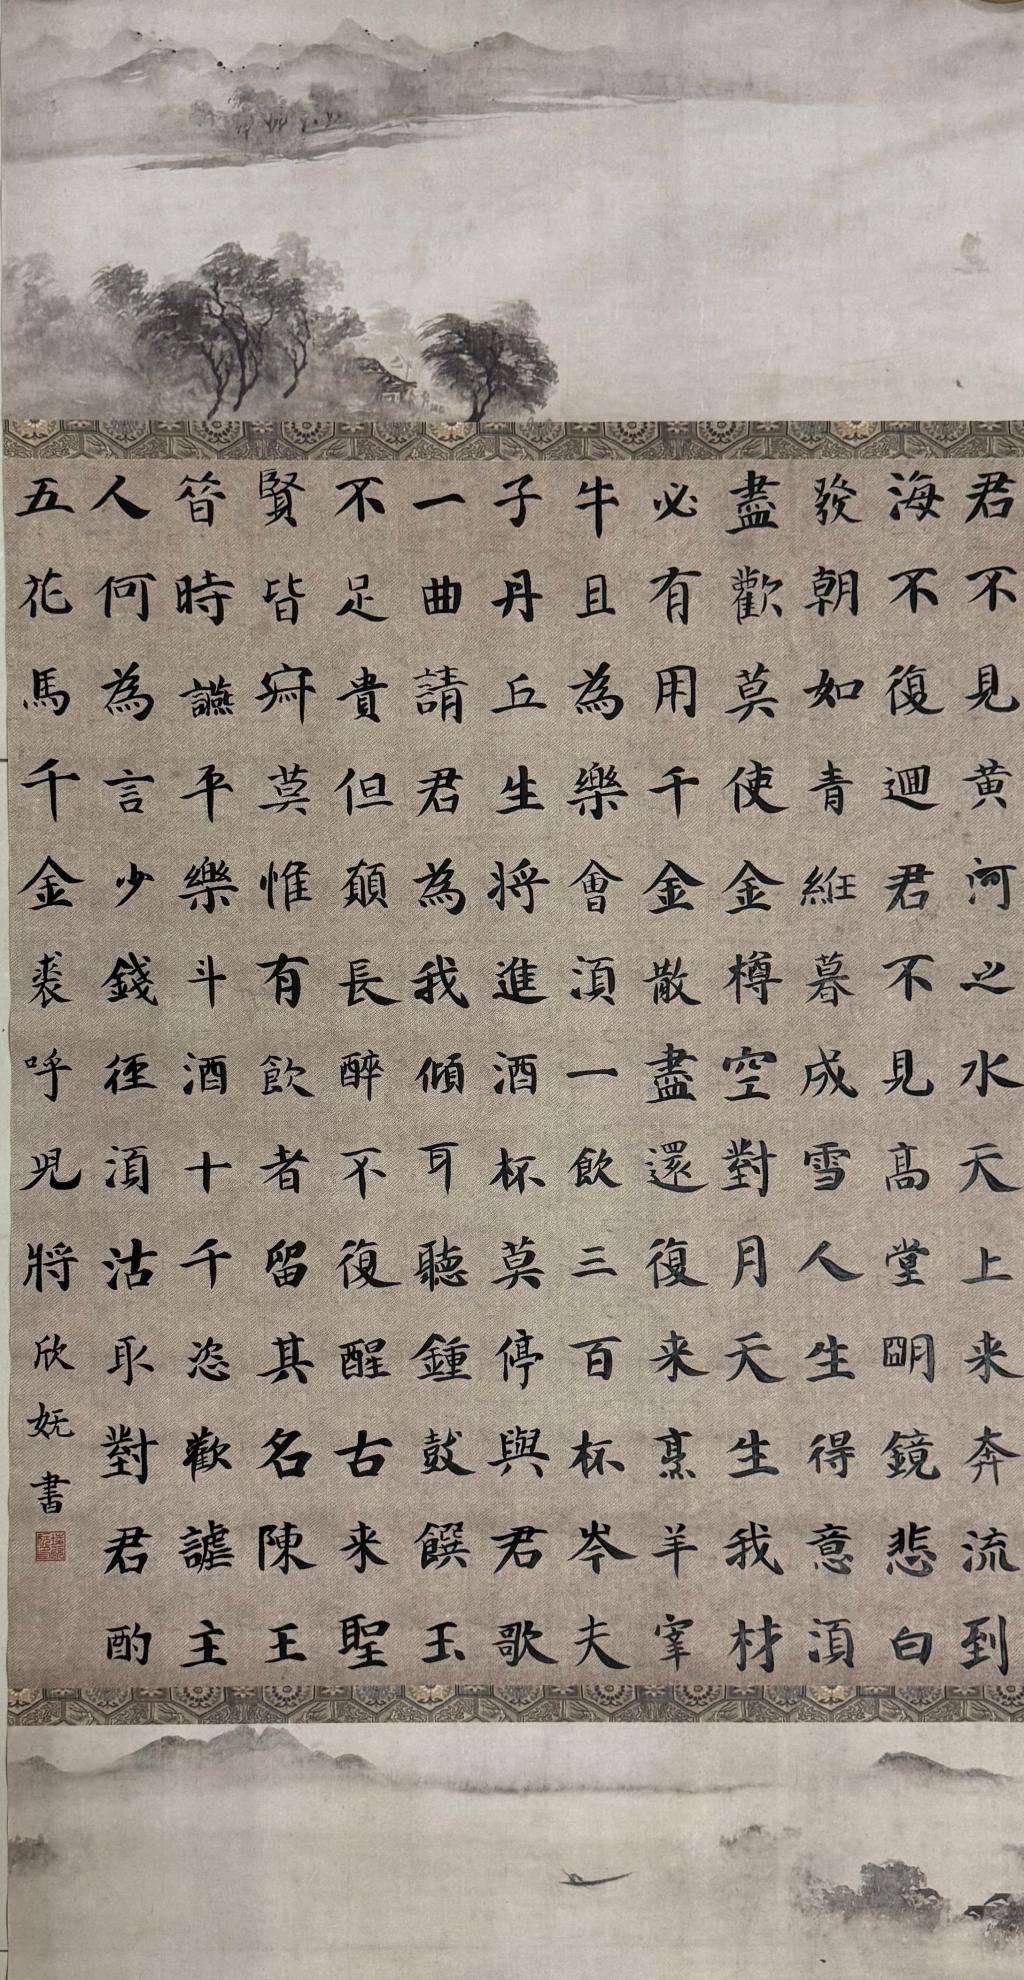 君不見黄河之水天上来奔流到
海不復迴君不見高堂朙鏡悲白
發朝如青絲暮成雪人生得意湏
盡歡莫使金樽空對月天生我材
必有用千金散盡還復来烹羊宰
牛且為樂會湏一飲三百杯岑夫
子丹丘生將進酒杯莫停與君歌
一曲請君為我傾耳聽鍾鼓饌玉
不足貴但願長醉不復醒古来聖
賢皆寂莫惟有飲者留其名陳王
昔時讌平樂斗酒十千恣歡謔主
人何為言少錢徑湏沽取對君酌
五花馬千金裘呼兒將
欣妩書